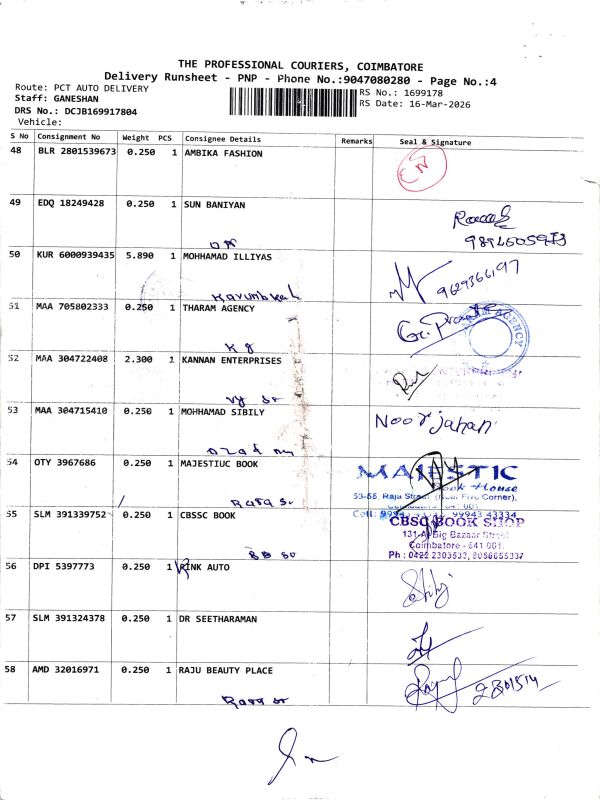 THE PROFESSIONAL COURIERS, COIMBATORE
Delivery Runsheet - PNP - Phone No.:9047080280 - Page No.:4
Route: PCT AUTO DELIVERY
RS No.: 1699178
Staff: GANESHAN
RS Date: 16-Mar-2026
DRS No.: DCJB169917804
Vehicle:
S No Consignment No Weight PCS Consignee Details Remarks Seal & Signature
48 BLR 2801539673 0.250 1 AMBIKA FASHION
49 EDQ 18249428 0.250 1 SUN BANIYAN
50 KUR 6000939435 5.890 1 MOHHAMAD ILLIYAS
9629366197
51 MAA 705802333 0.250 1 THARAM AGENCY
AGENCY
52 MAA 304722408 2.300 1 KANNAN ENTERPRISES
53 MAA 304715410 0.250 1 MOHHAMAD SIBILY
Noor jahan
54 OTY 3967686 0.250 1 MAJESTIUC BOOK
MAJESTIC
Book House
53-55, Raja Street (Near Five Corner),
99943 43334
55 SLM 391339752 0.250 1 CBSSC BOOK
CBSC BOOK SHOP
Big Bazaar Street
Coimbatore - 641 001.
Ph : 0422 2303533, 8056655337
56 DPI 5397773 0.250 1 RINK AUTO
57 SLM 391324378 0.250 1 DR SEETHARAMAN
58 AMD 32016971 0.250 1 RAJU BEAUTY PLACE